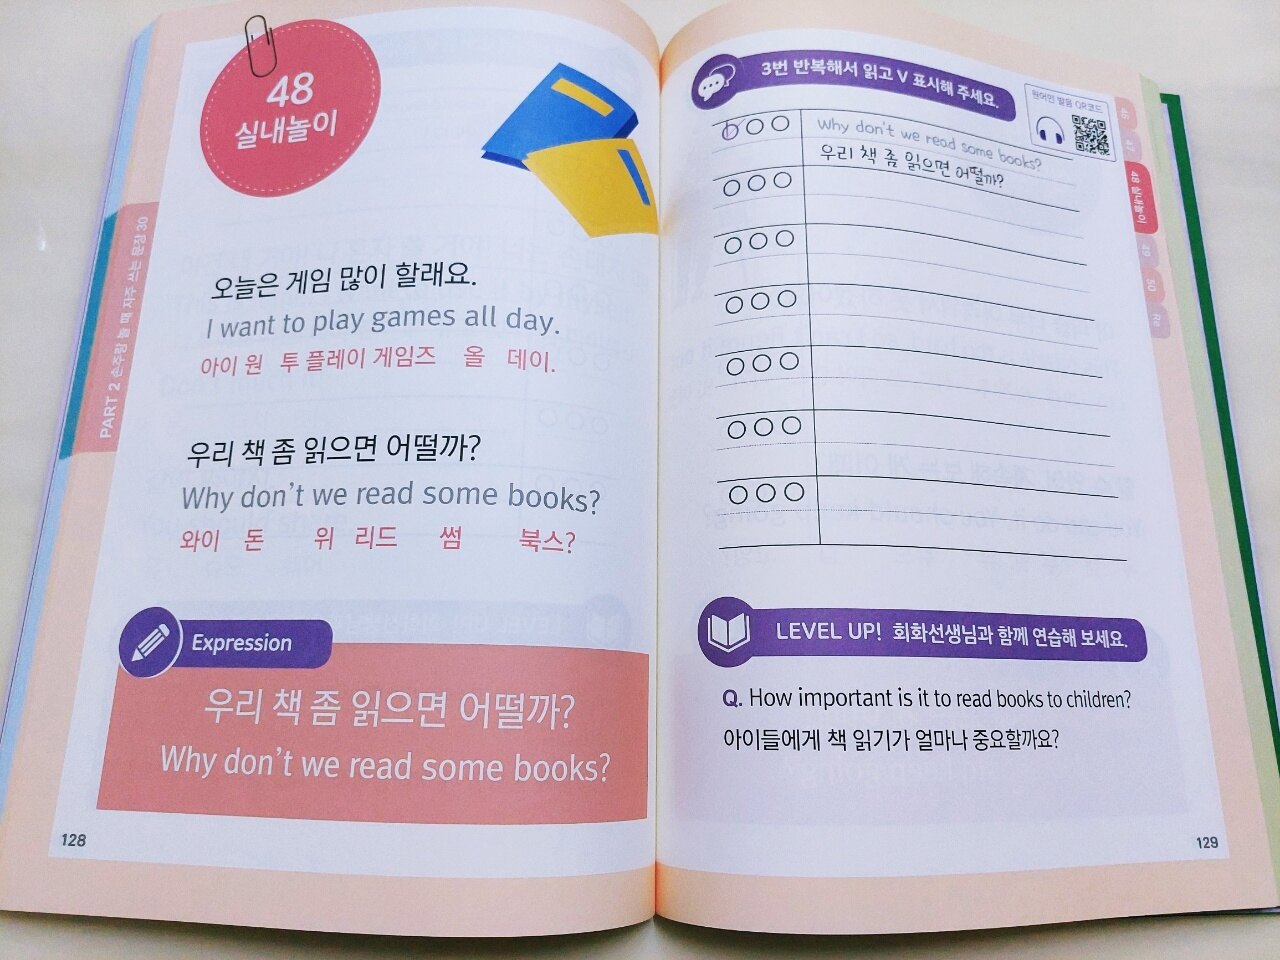 48
실내놀이
PART 2 손주랑 놀 때 자주 쓰는 문장 30
오늘은 게임 많이 할래요.
I want to play games all day.
아이 원 투 플레이 게임즈 올 데이.
우리 책 좀 읽으면 어떨까?
Why don't we read some books?
와이 돈 위 리드 썸 북스?
Expression
우리 책 좀 읽으면 어떨까?
Why don't we read some books?
128
3번 반복해서 읽고 V 표시해 주세요.
원어민 발음 QR코드
Why don't we read some books?
우리 책 좀 읽으면 어떨까?
46
47
48 실내놀이
49
50
LEVEL UP! 회화선생님과 함께 연습해 보세요.
Q. How important is it to read books to children?
아이들에게 책 읽기가 얼마나 중요할까요?
129